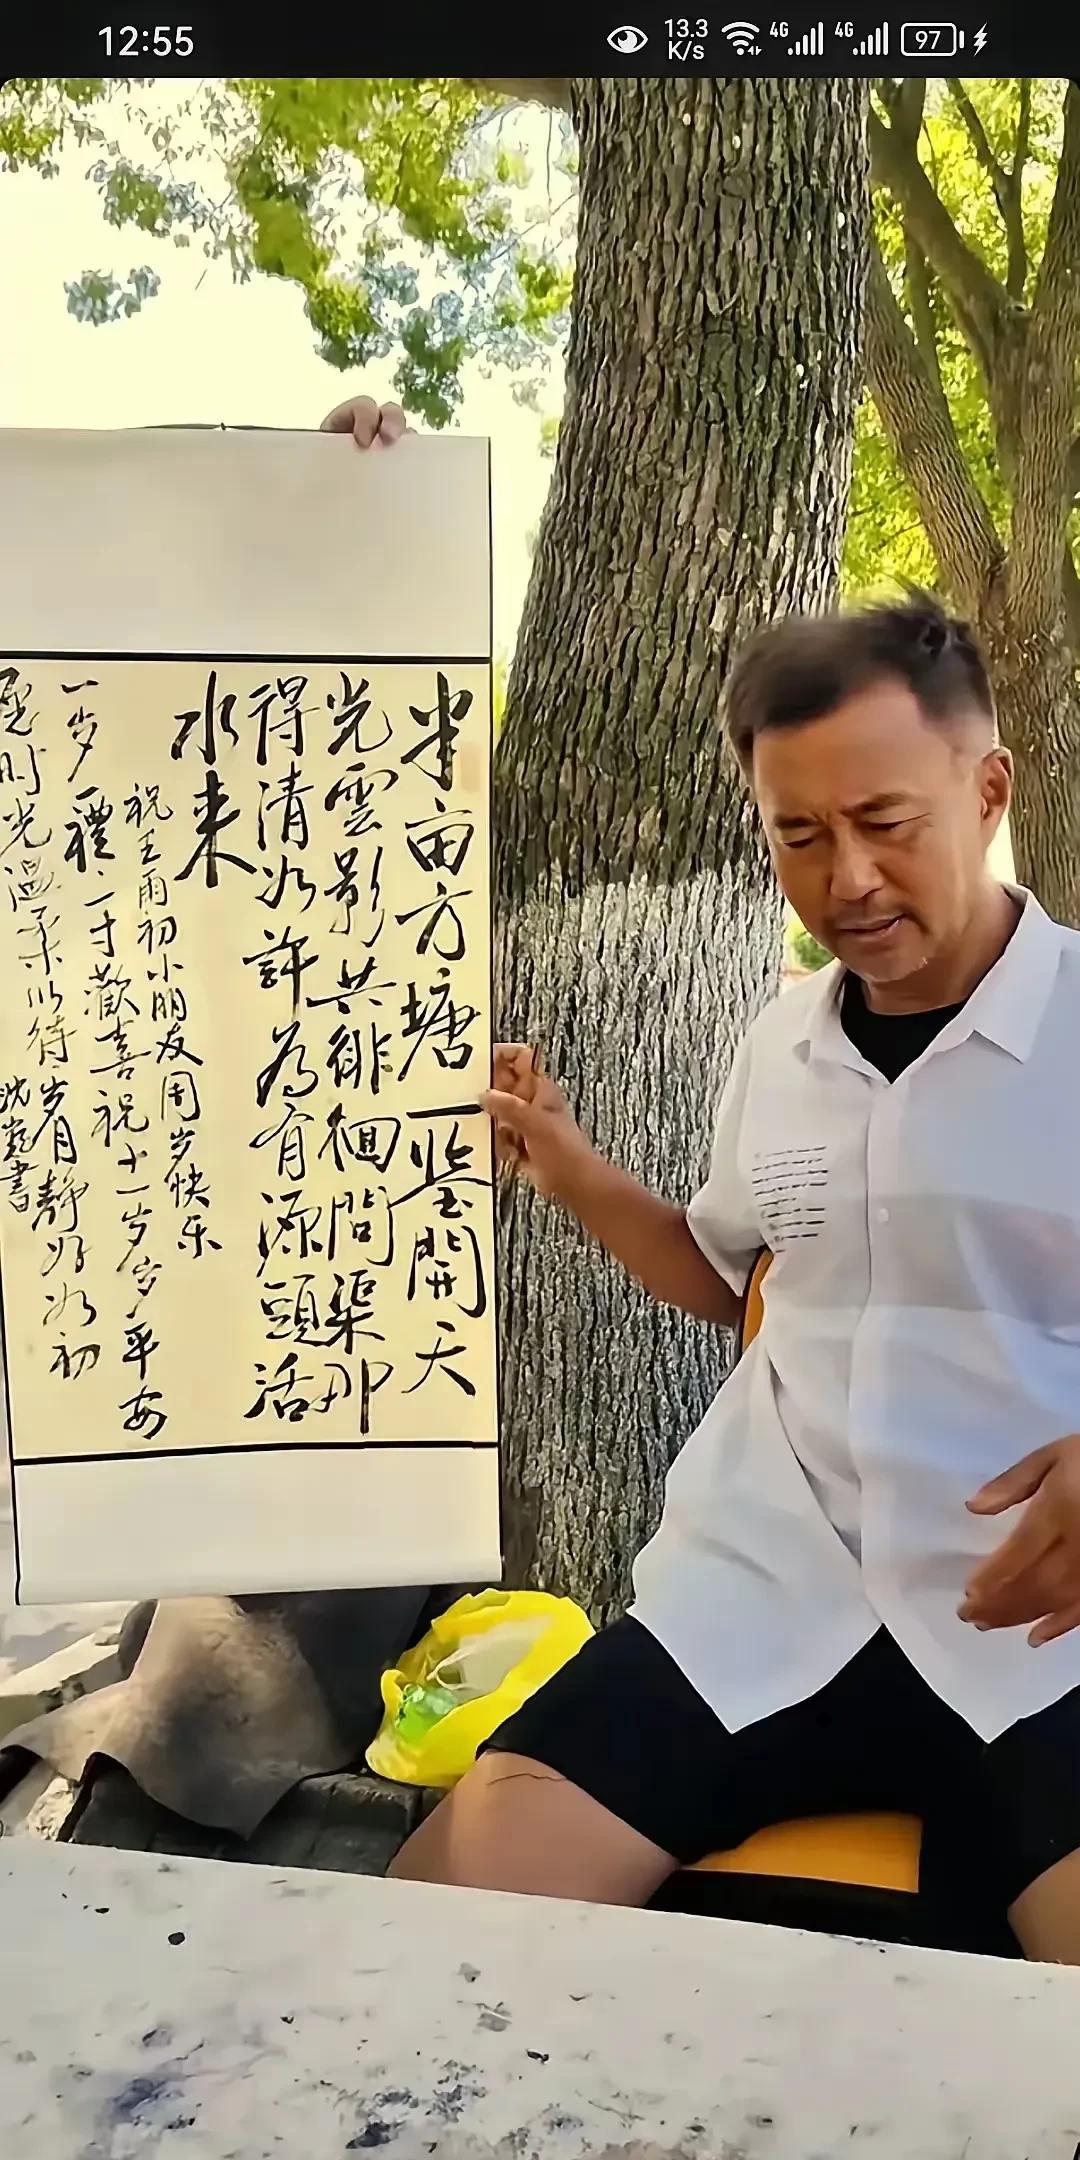 12:55
13.3 K/s 4G 4G 97
半亩方塘一鉴開天
光雲影共徘徊問渠那
得清如許為有源頭活
水来
祝王雨初小朋友周岁快乐
一岁一禮一寸歡喜祝十一岁岁平安
愿时光温柔以待岁月静好如初
沈巍書